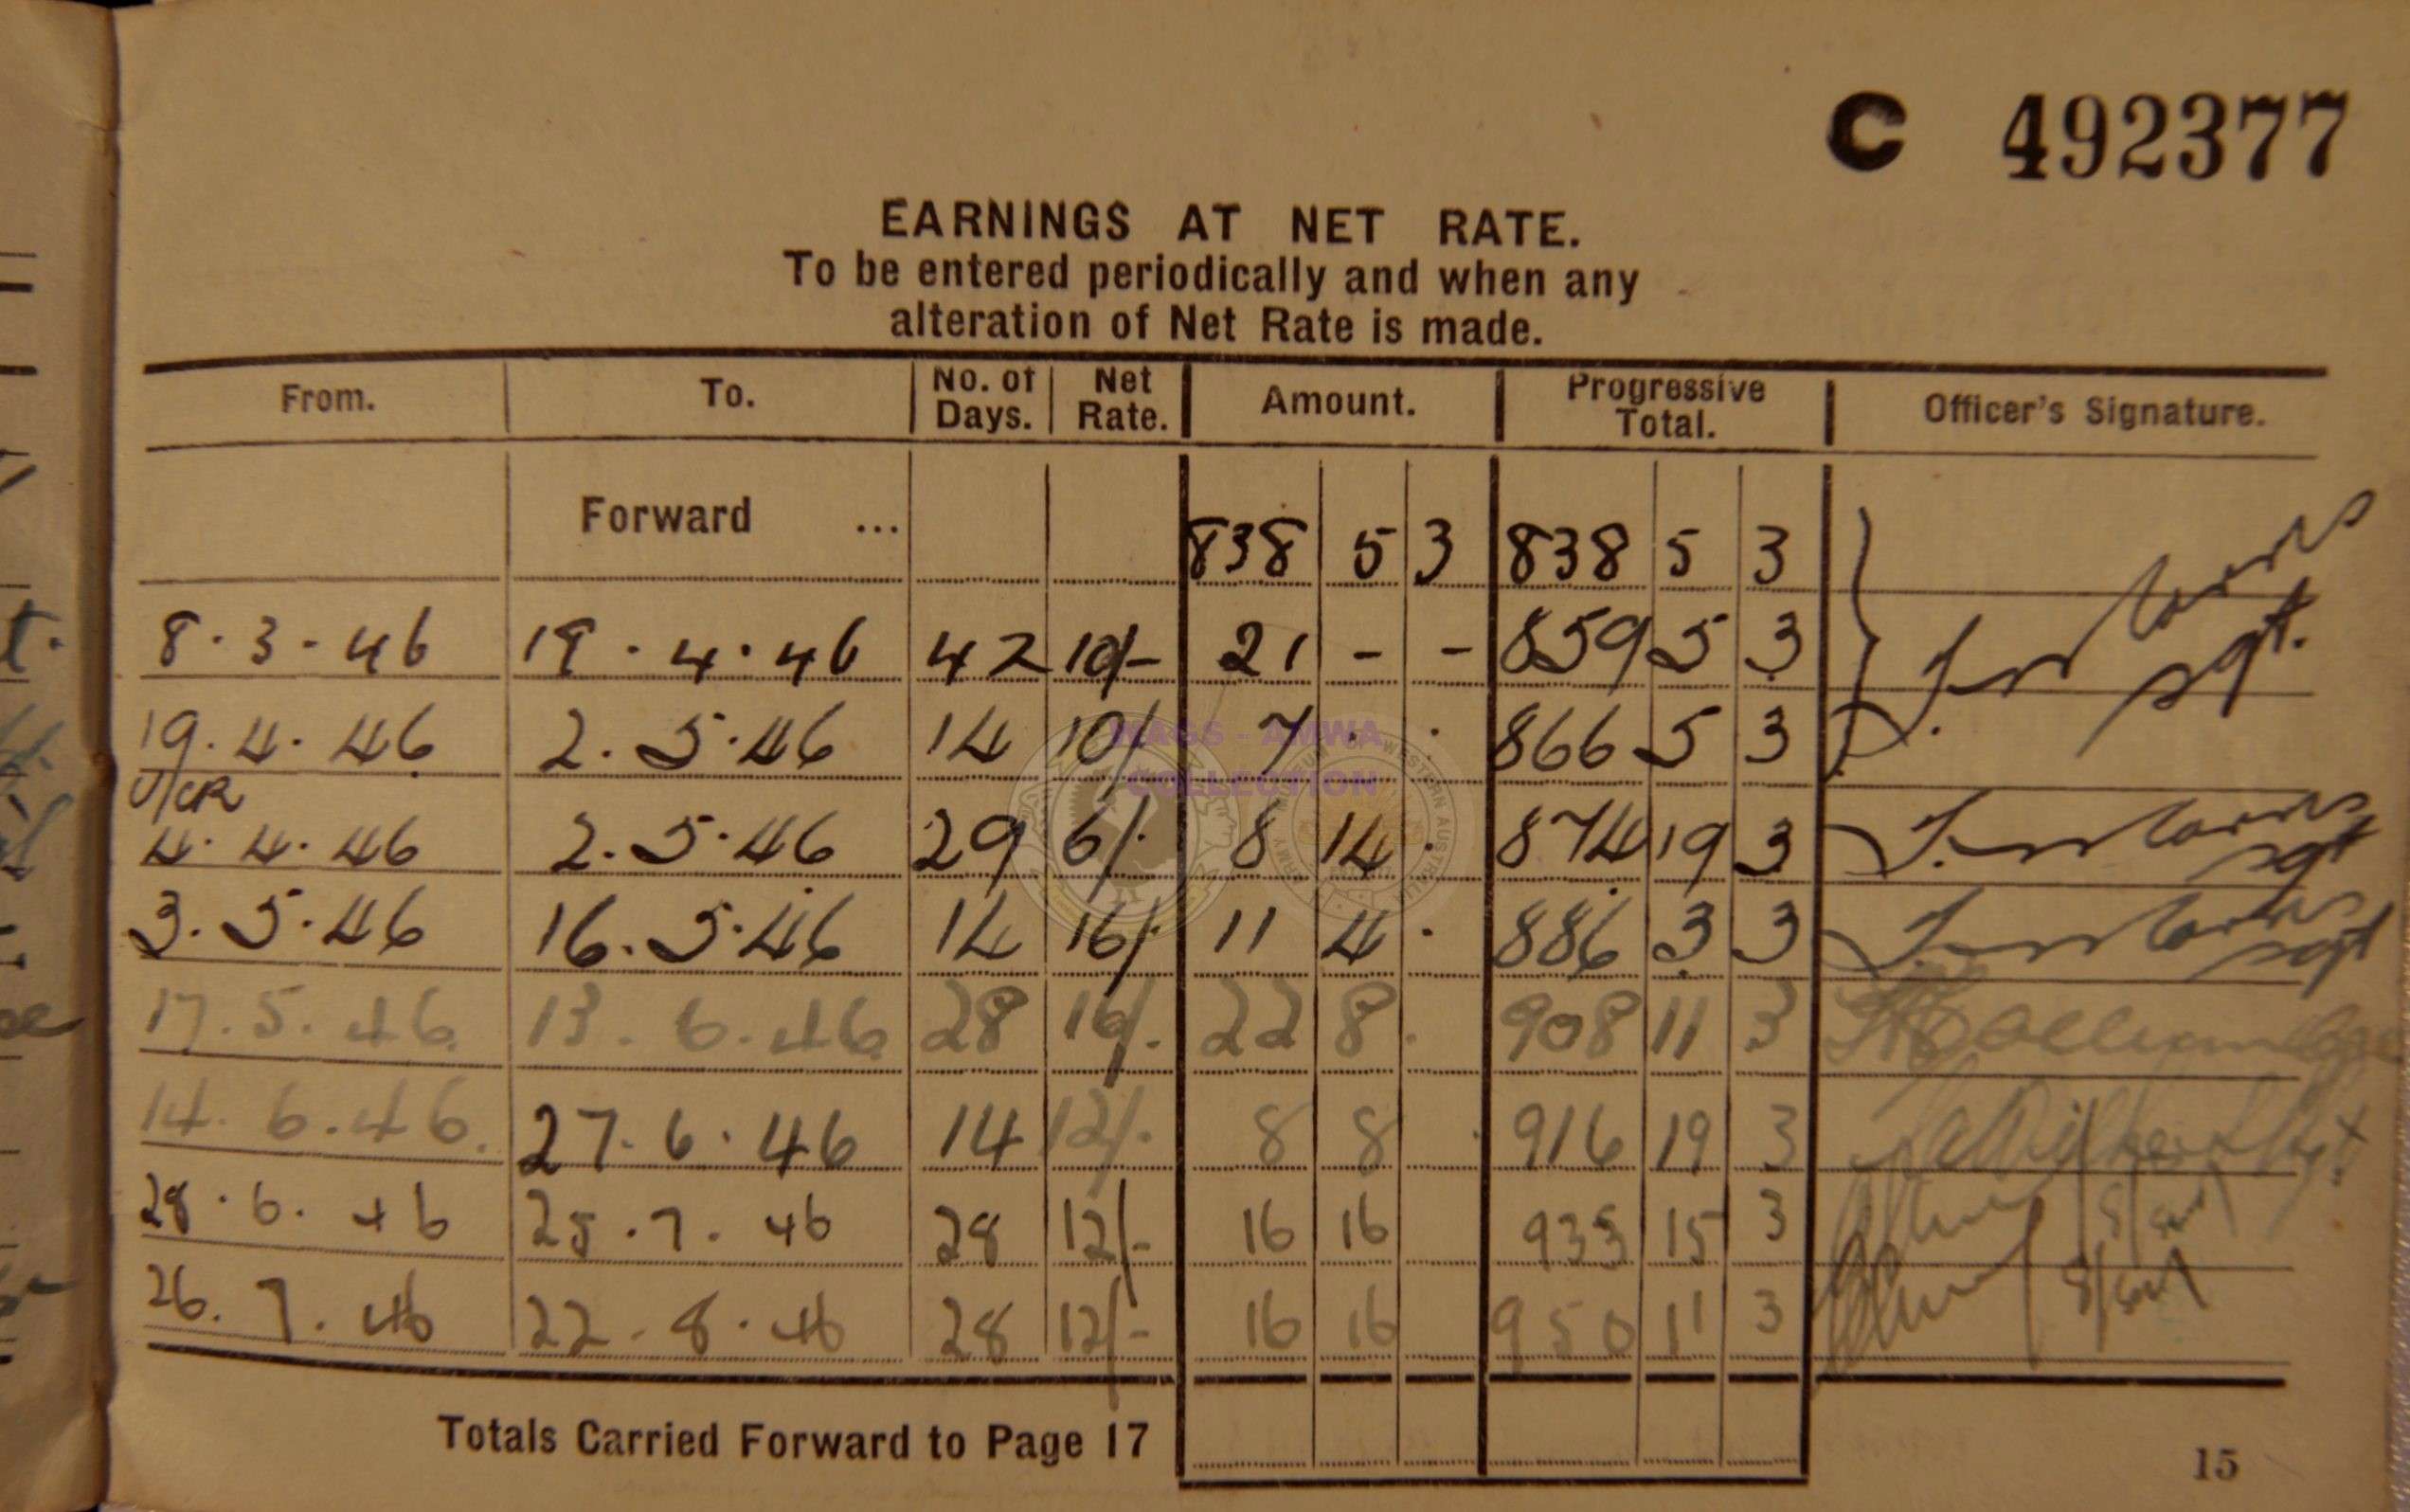 C 492377
EARNINGS AT NET RATE.
To be entered periodically and when any
alteration of Net Rate is made.
From. To. No. of Days. Net Rate. Amount. Progressive Total. Officer's Signature.
Forward ... 838 5 3 838 5 3
8.3.46 18.4.46 42 10/- 21 - - 859 5 3 Sgt.
19.4.46 2.5.46 14 10/- 7 . . 866 5 3
U/CR
4.4.46 2.5.46 29 6/. 8 14 . 874 19 3 Sgt
3.5.46 16.5.46 14 16/. 11 4 . 886 3 3 Sgt
17.5.46 13.6.46 28 16/. 22 8 . 908 11 3
14.6.46. 27.6.46 14 12/. 8 8 . 916 19 3 Sgt
28.6.46 25.7.46 28 12/- 16 16 933 15 3
26.7.46 22.8.46 28 12/- 16 16 950 11 3
Totals Carried Forward to Page 17
15
WAGS - AMWA
COLLECTION